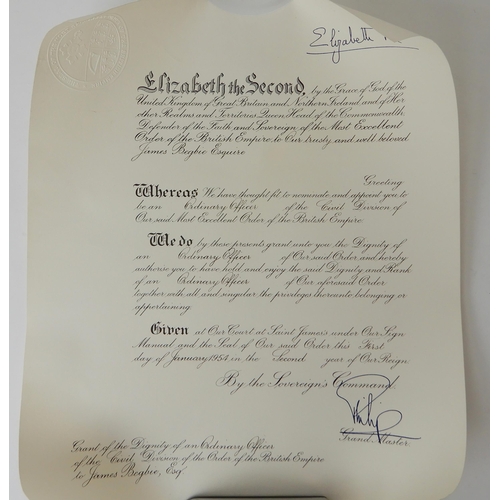 Elizabeth
Elizabeth the Second, by the Grace of God of the
United Kingdom of Great Britain and Northern Ireland and of Her
other Realms and Territories Queen, Head of the Commonwealth,
Defender of the Faith and Sovereign of the Most Excellent
Order of the British Empire to Our trusty and well beloved
James Begbie Esquire
Greeting
Whereas We have thought fit to nominate and appoint you to
be an Ordinary Officer of the Civil Division of
Our said Most Excellent Order of the British Empire
We do by these presents grant unto you the Dignity of
an Ordinary Officer of Our said Order and hereby
authorise you to have hold and enjoy the said Dignity and Rank
of an Ordinary Officer of Our aforesaid Order
together with all and singular the privileges thereunto belonging or
appertaining.
Given at Our Court at Saint James's under Our Sign
Manual and the Seal of Our said Order this First
day of January 1954 in the Second year of Our Reign.
By the Sovereign's Command.
Philip
Grand Master
Grant of the Dignity of an Ordinary Officer
of the Civil Division of the Order of the British Empire
to James Begbie, Esq.